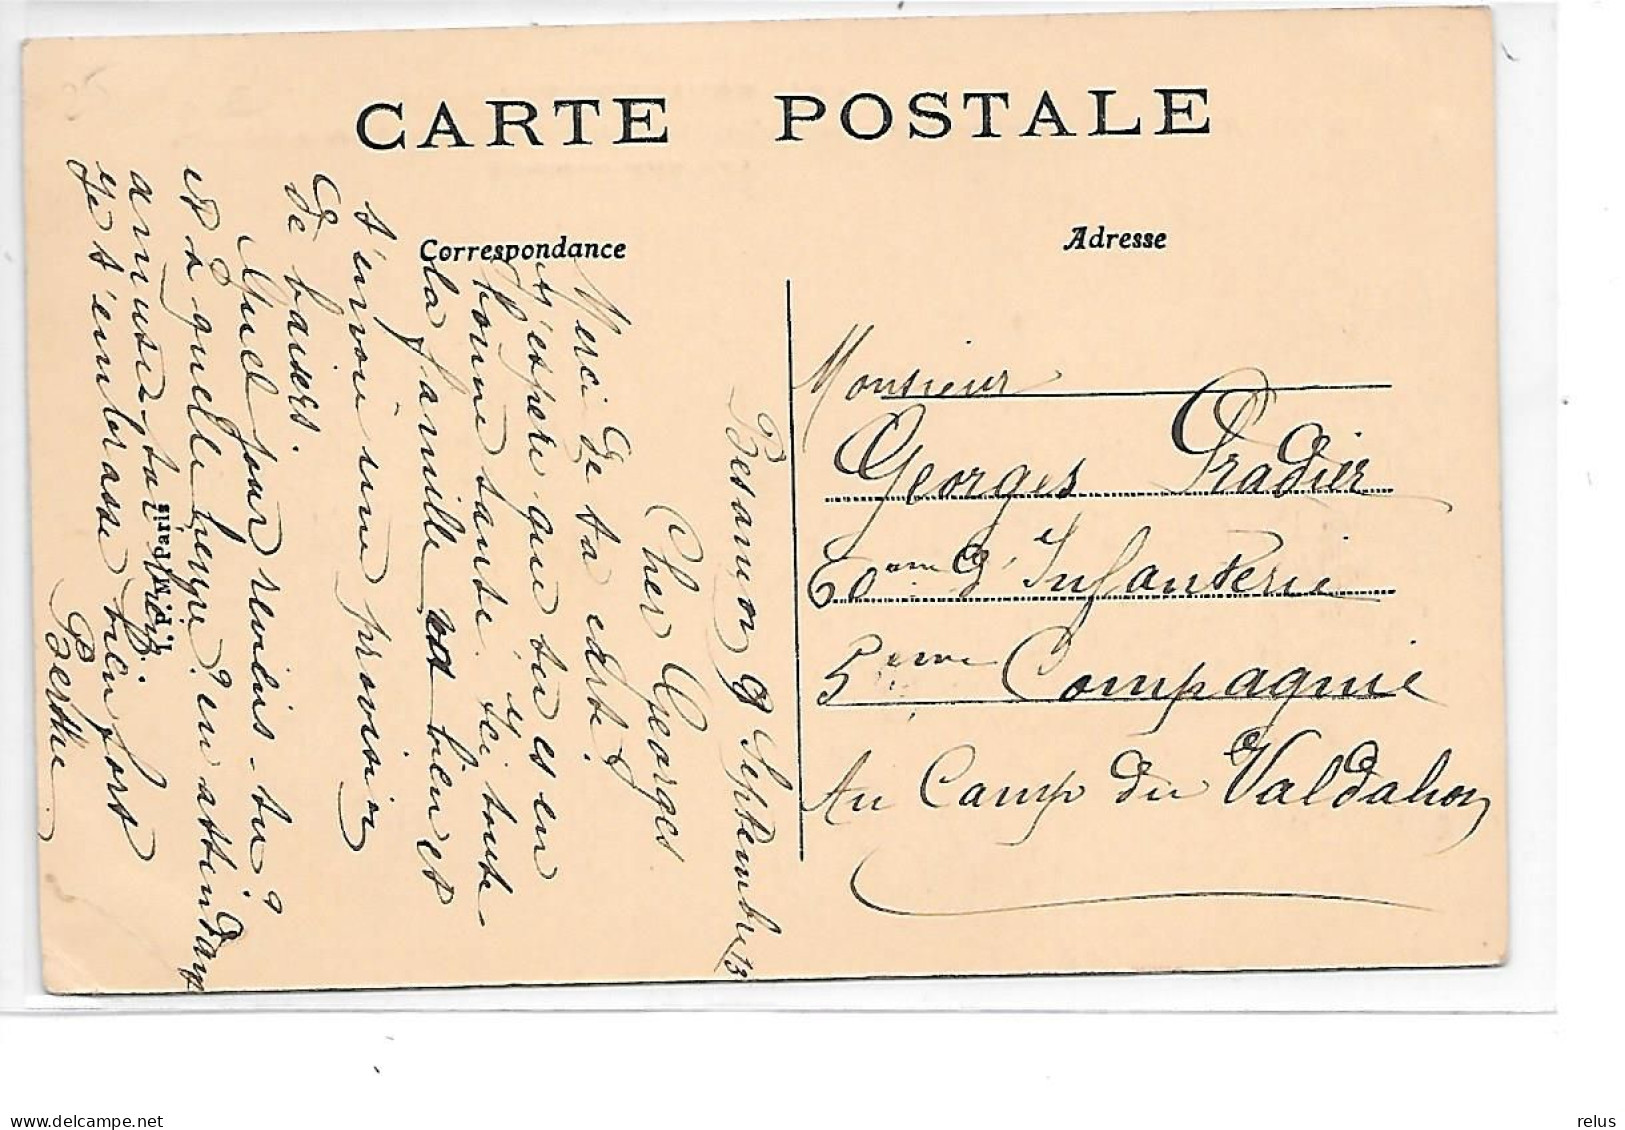 CARTE POSTALE
Correspondance
Adresse
Besançon 9 Septembre 13
Cher Georges
Merci de ta carte. &
j'espère que tu es en
bonne santé. Ici toute
la famille est bien et
s'envoie une provision
de baisers.
Quel jour reviens-tu?
et à quelle heure? en attendant
amuse-toi bien.
je t'embrasse bien fort
Berthe
I. P. M. Paris
Monsieur
Georges Pradier
60ème d'Infanterie
5ème Compagnie
Au Camp du Valdahon
delcampe.net
relus